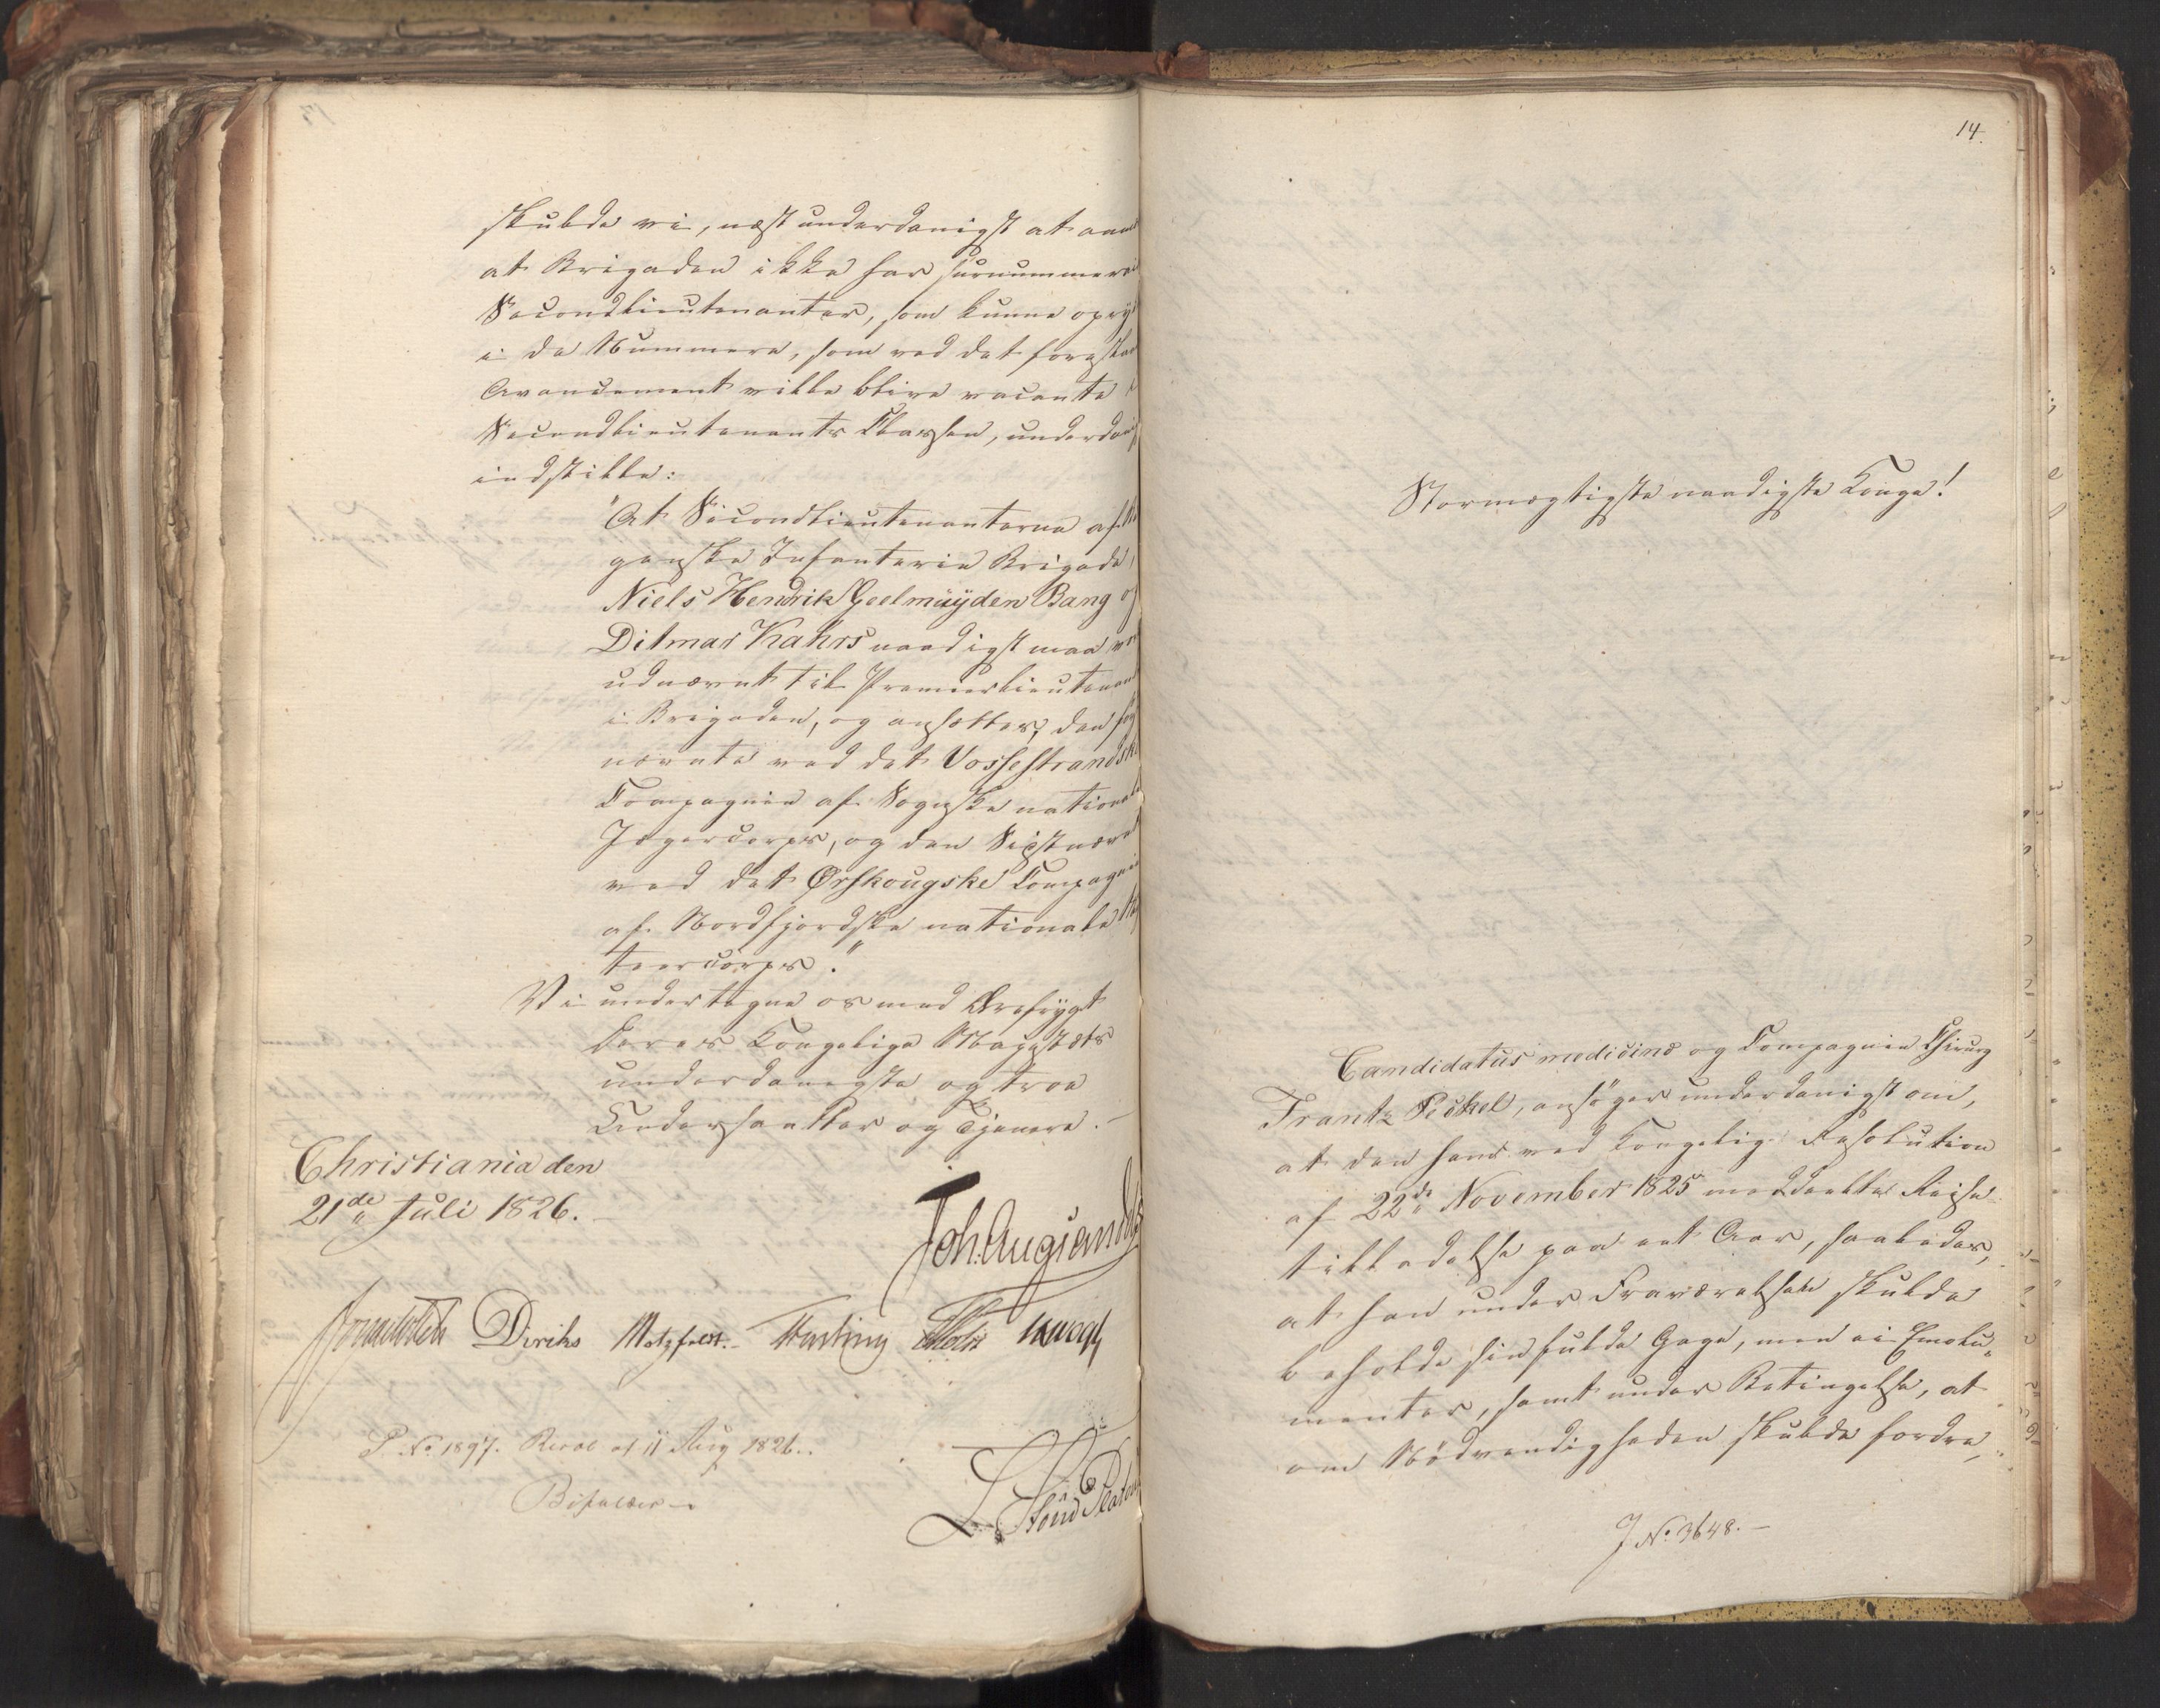 skulde vi, næst underdanigst at an
at Brigaden ikke har surnummerai
Secondlieutenanter, som kunne opry
i de Nummere, som ved det foreslaa
Avancement ville blive vacante
Secondlieutenants Classen, underdani
indstille:
"At Secondlieutenanterne af
genske Infanterie Brigade,
Niels Hendrik Geelmuyden Bang og
Ditmar Kahrs naadigst maa vo
udnævnt til Premierlieutenant
i Brigaden, og ansættes, den før
nævnte ved det Vossestrandske
Compagnie af Sognske nationale
Jægercorps, og den Sidstnævn
ved det Ørskougske Compagnie
af Nordfjordske nationale
teercorps."
Vi undertegne os med Ærefrygt
Deres Kongelige Majestæts
underdanigste og troe
Undersaatter og Tjenere.-
Christiania den
21de Juli 1826.
Joh. Aug. Sandels
Diriks Motzfeldt. Fasting Holst
P. No 1897. Resol af 11 Aug 1826.
Bifaldes
14.
Stormægtigste naadigste Konge!
Candidatus medicinæ og Compagnie Chirurg
Frantz Peckel, ansøger underdanigst om,
at den ham ved Kongelig Resolution
af 22de November 1825 meddeelte Reise
tilladelse paa eet Aar, saaledes,
at han under Fraværelsen skulde
beholde sin fulde Gage, men ei Emolu„
menter, samt under Betingelse, at
om Nødvendigheden skulde fordre,
J No. 3648.-